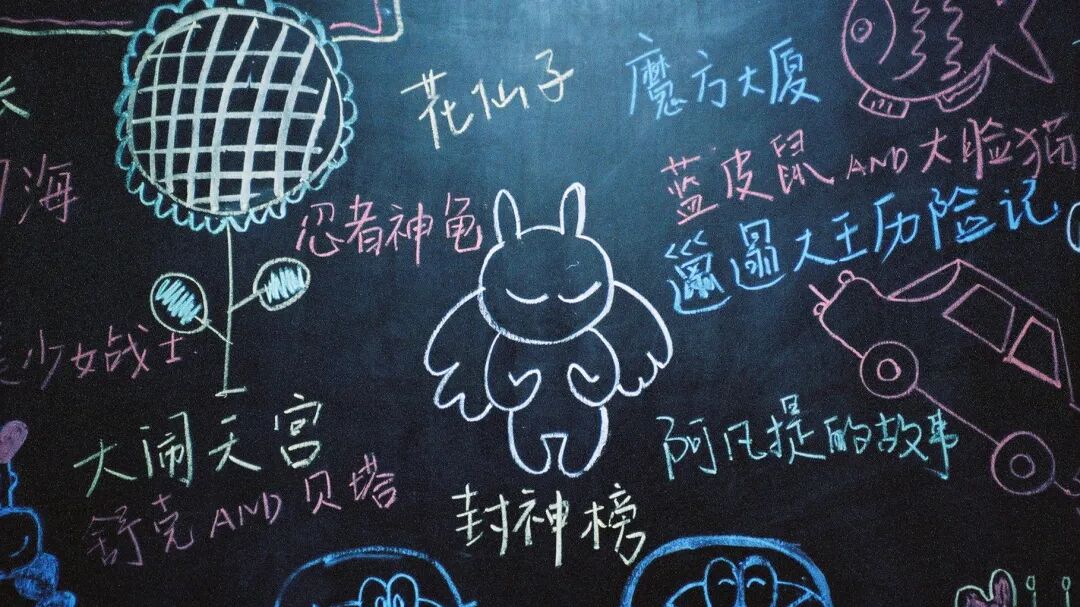 花仙子
魔方大厦
蓝皮鼠AND大脸猫
邋遢大王历险记
海
忍者神龟
美少女战士
大闹天宫
舒克AND贝塔
阿凡提的故事
封神榜